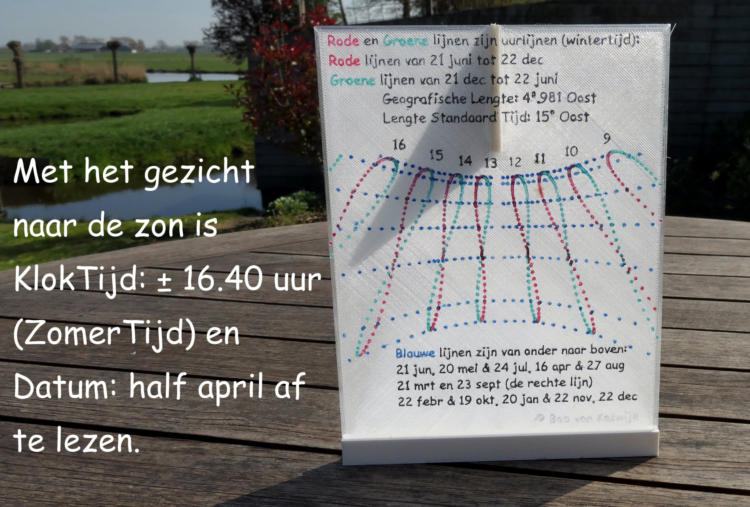 Rode en Groene lijnen zijn uurlijnen (wintertijd):
Rode lijnen van 21 juni tot 22 dec
Groene lijnen van 21 dec tot 22 juni
Geografische Lengte: 4°,981 Oost
Lengte Standaard Tijd: 15° Oost
16 15 14 13 12 11 10 9
Met het gezicht
naar de zon is
KlokTijd: ± 16.40 uur
(ZomerTijd) en
Datum: half april af
te lezen.
Blauwe lijnen zijn van onder naar boven:
21 jun, 20 mei & 24 jul, 16 apr & 27 aug
21 mrt en 23 sept (de rechte lijn)
22 febr & 19 okt, 20 jan & 22 nov, 22 dec